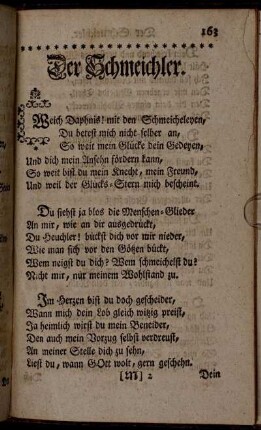 163
Der Schmeichler.
Weich Daphnis! mit den Schmeicheleyen,
Du betest mich nicht selber an,
So weit mein Glücke dein Gedeyen,
Und dich mein Ansehn fördern kann,
So weit bist du mein Knecht, mein Freund,
Und weil der Glücks-Stern mich bescheint.
Du siehst ja blos die Menschen-Glieder
An mir, wie an dir ausgedrückt,
Du Heuchler! bückst dich vor mir nieder,
Wie man sich vor den Götzen bückt,
Wem neigst du dich? Wem schmeichelst du?
Nicht mir, nur meinem Wohlstand zu.
Im Herzen bist du doch gescheider,
Wann mich dein Lob gleich witzig preist,
Ja heimlich wirst du mein Beneider,
Den auch mein Vorzug selbst verdreust,
An meiner Stelle dich zu sehn,
Liest du, wann GOtt wolt, gern geschehn.
Dein